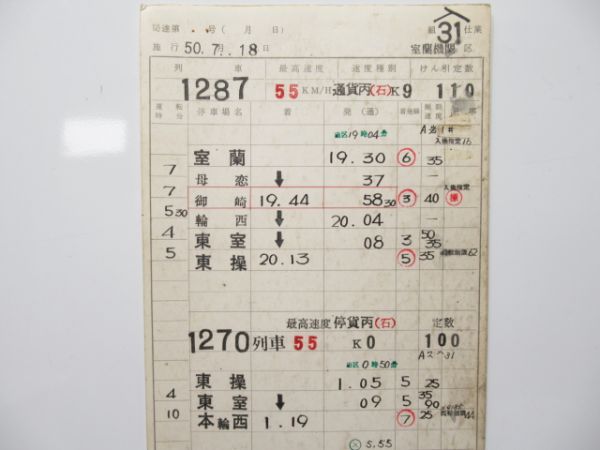 局達第 号( 月 日) 組 31 仕業
施行 50.7.18日 室蘭機関区
列 車 最高速度 速度種別 けん引定数
1287 55 KM/H 通貨丙(石)K9 110
運転時分 停車場名 着 発(通) 着発線 制限速度 記事
出区19時04分 入換指定16
室蘭 19.30 6 35
7 母恋 ↓ 37 —
7 御崎 19.44 58 30 3 40 入換指定
5 30 輪西 ↓ 20.04 —
4 東室 ↓ 08 3 50 35
5 東操 20.13 5 35 62
最高速度 停貨丙(石) 定数
1270 列車 55 K0 100
出区0時50分
東操 1.05 5 25
4 東室 ↓ 09 5 35 90
10 本輪西 1.19 7 25 44
5.55